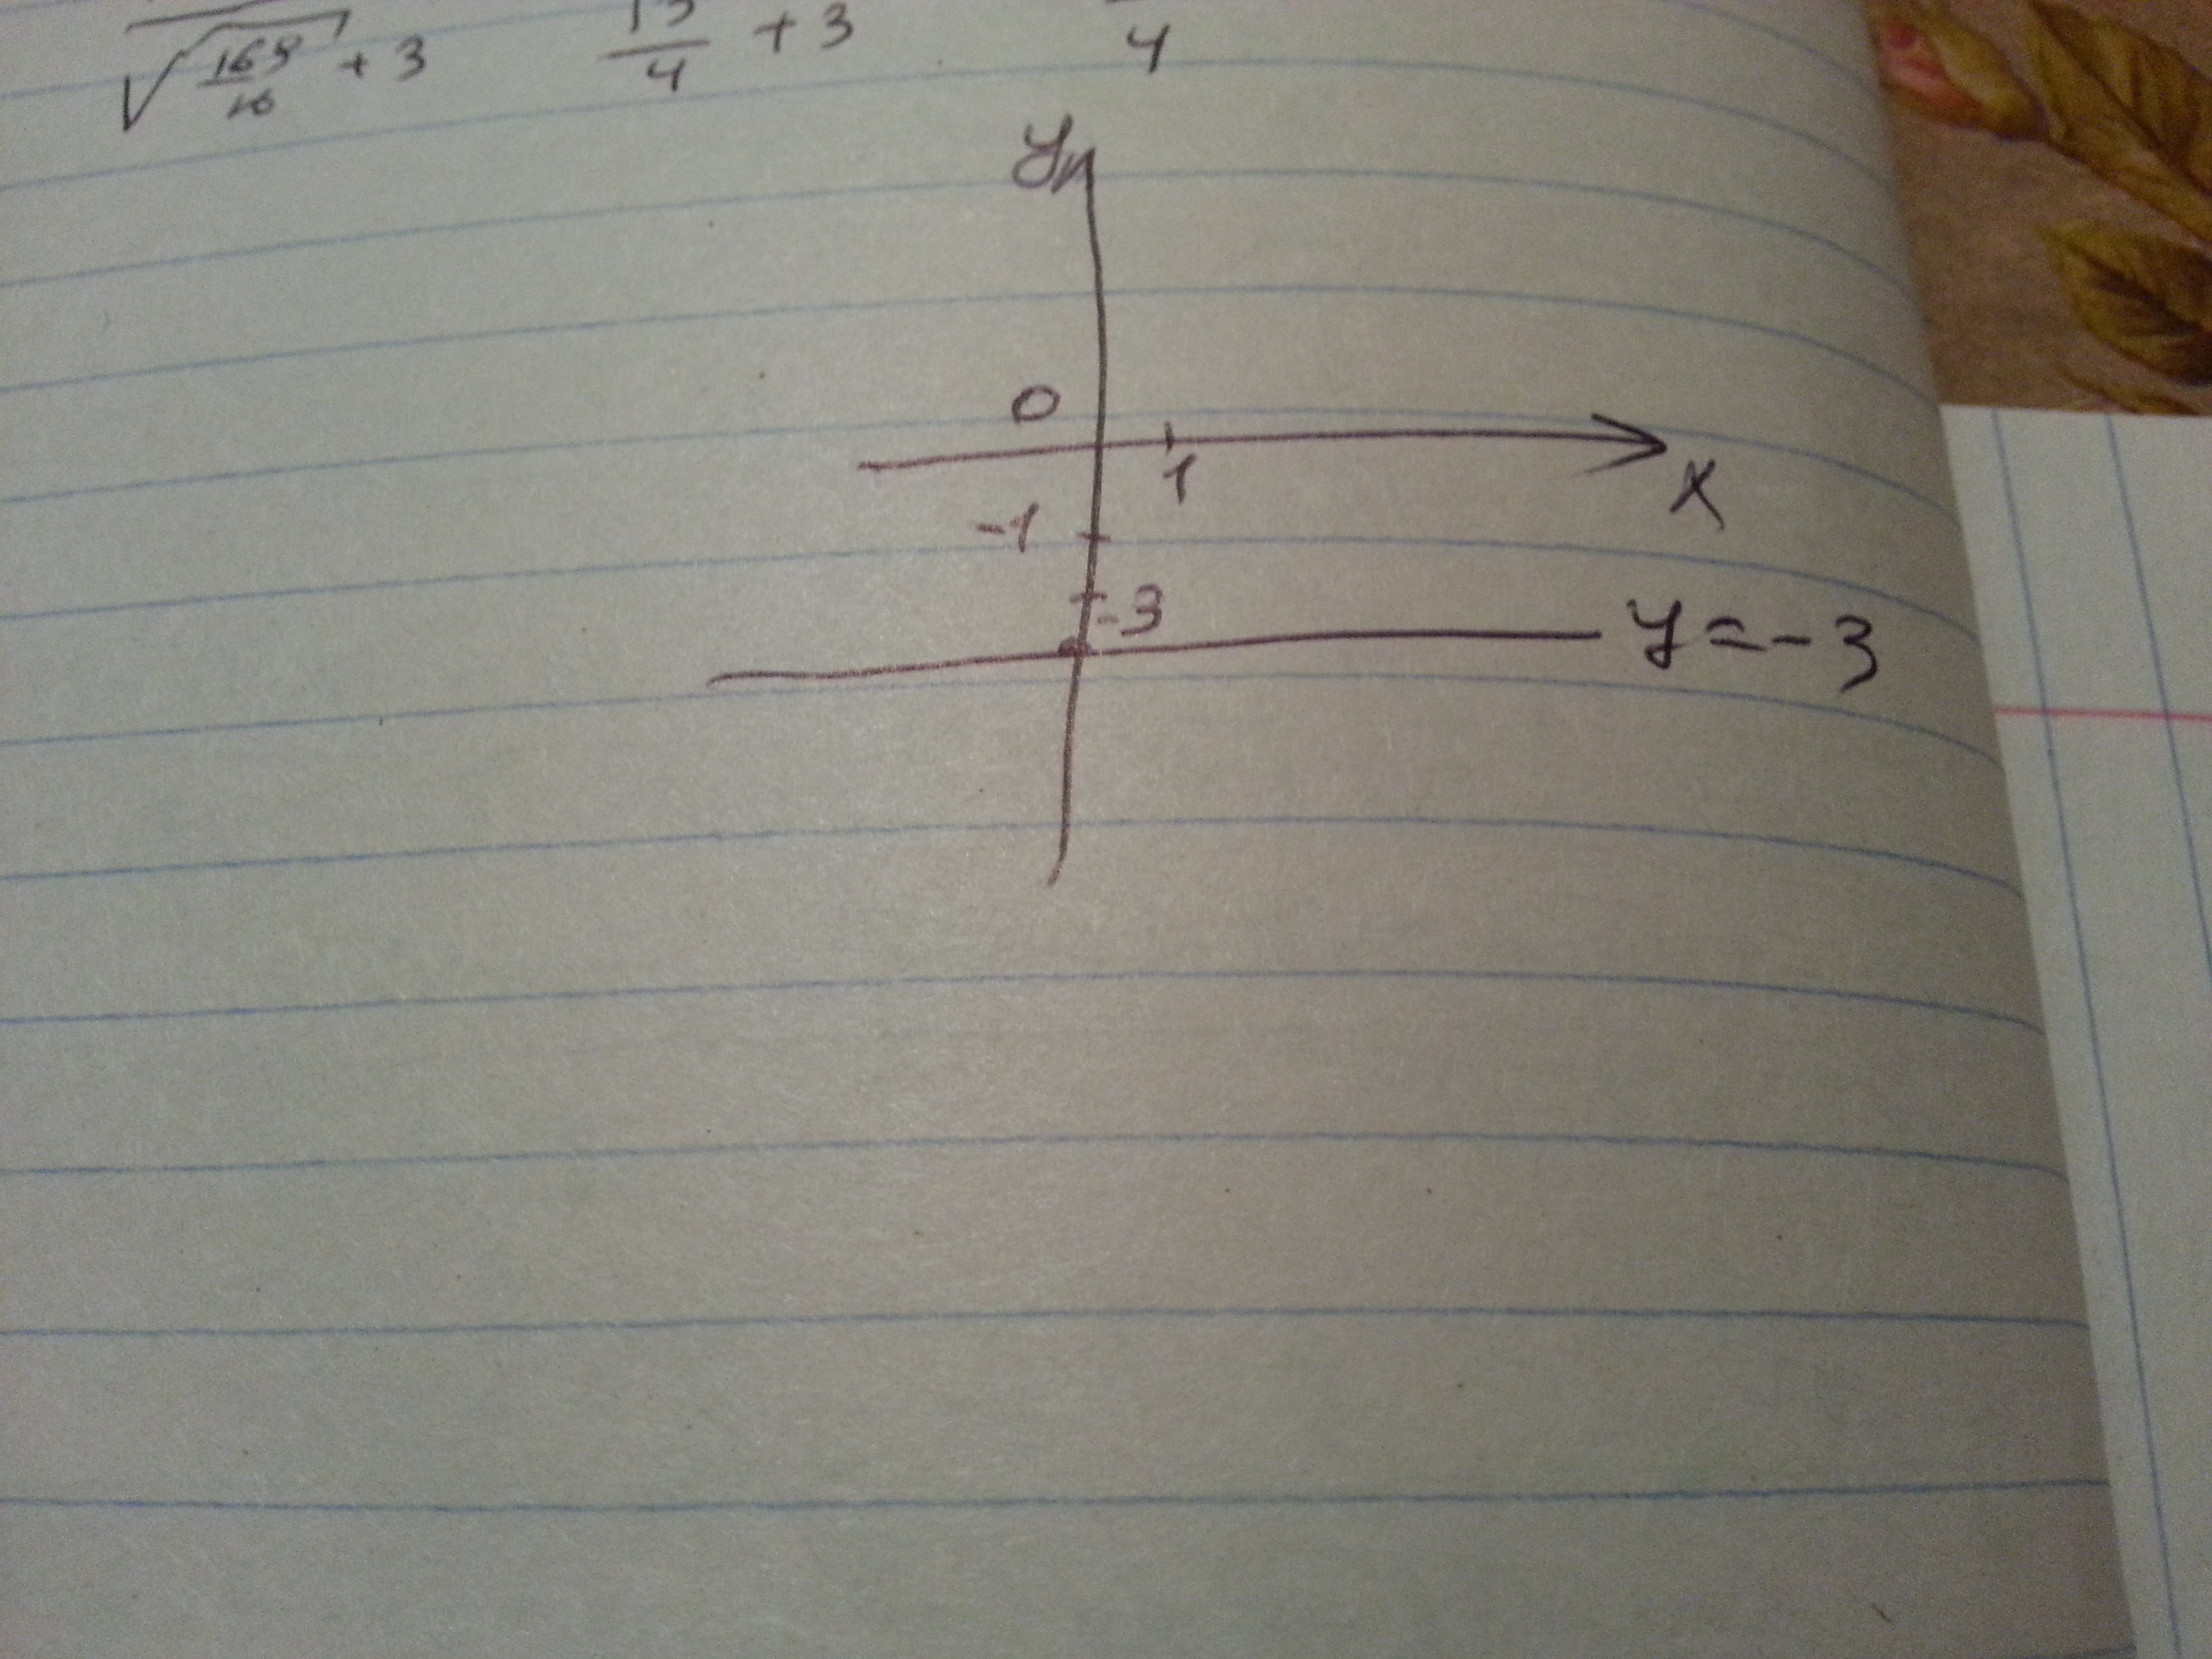 √169/16 + 3 13/4 + 3 4
y
0
1
x
-1
-3
y = -3